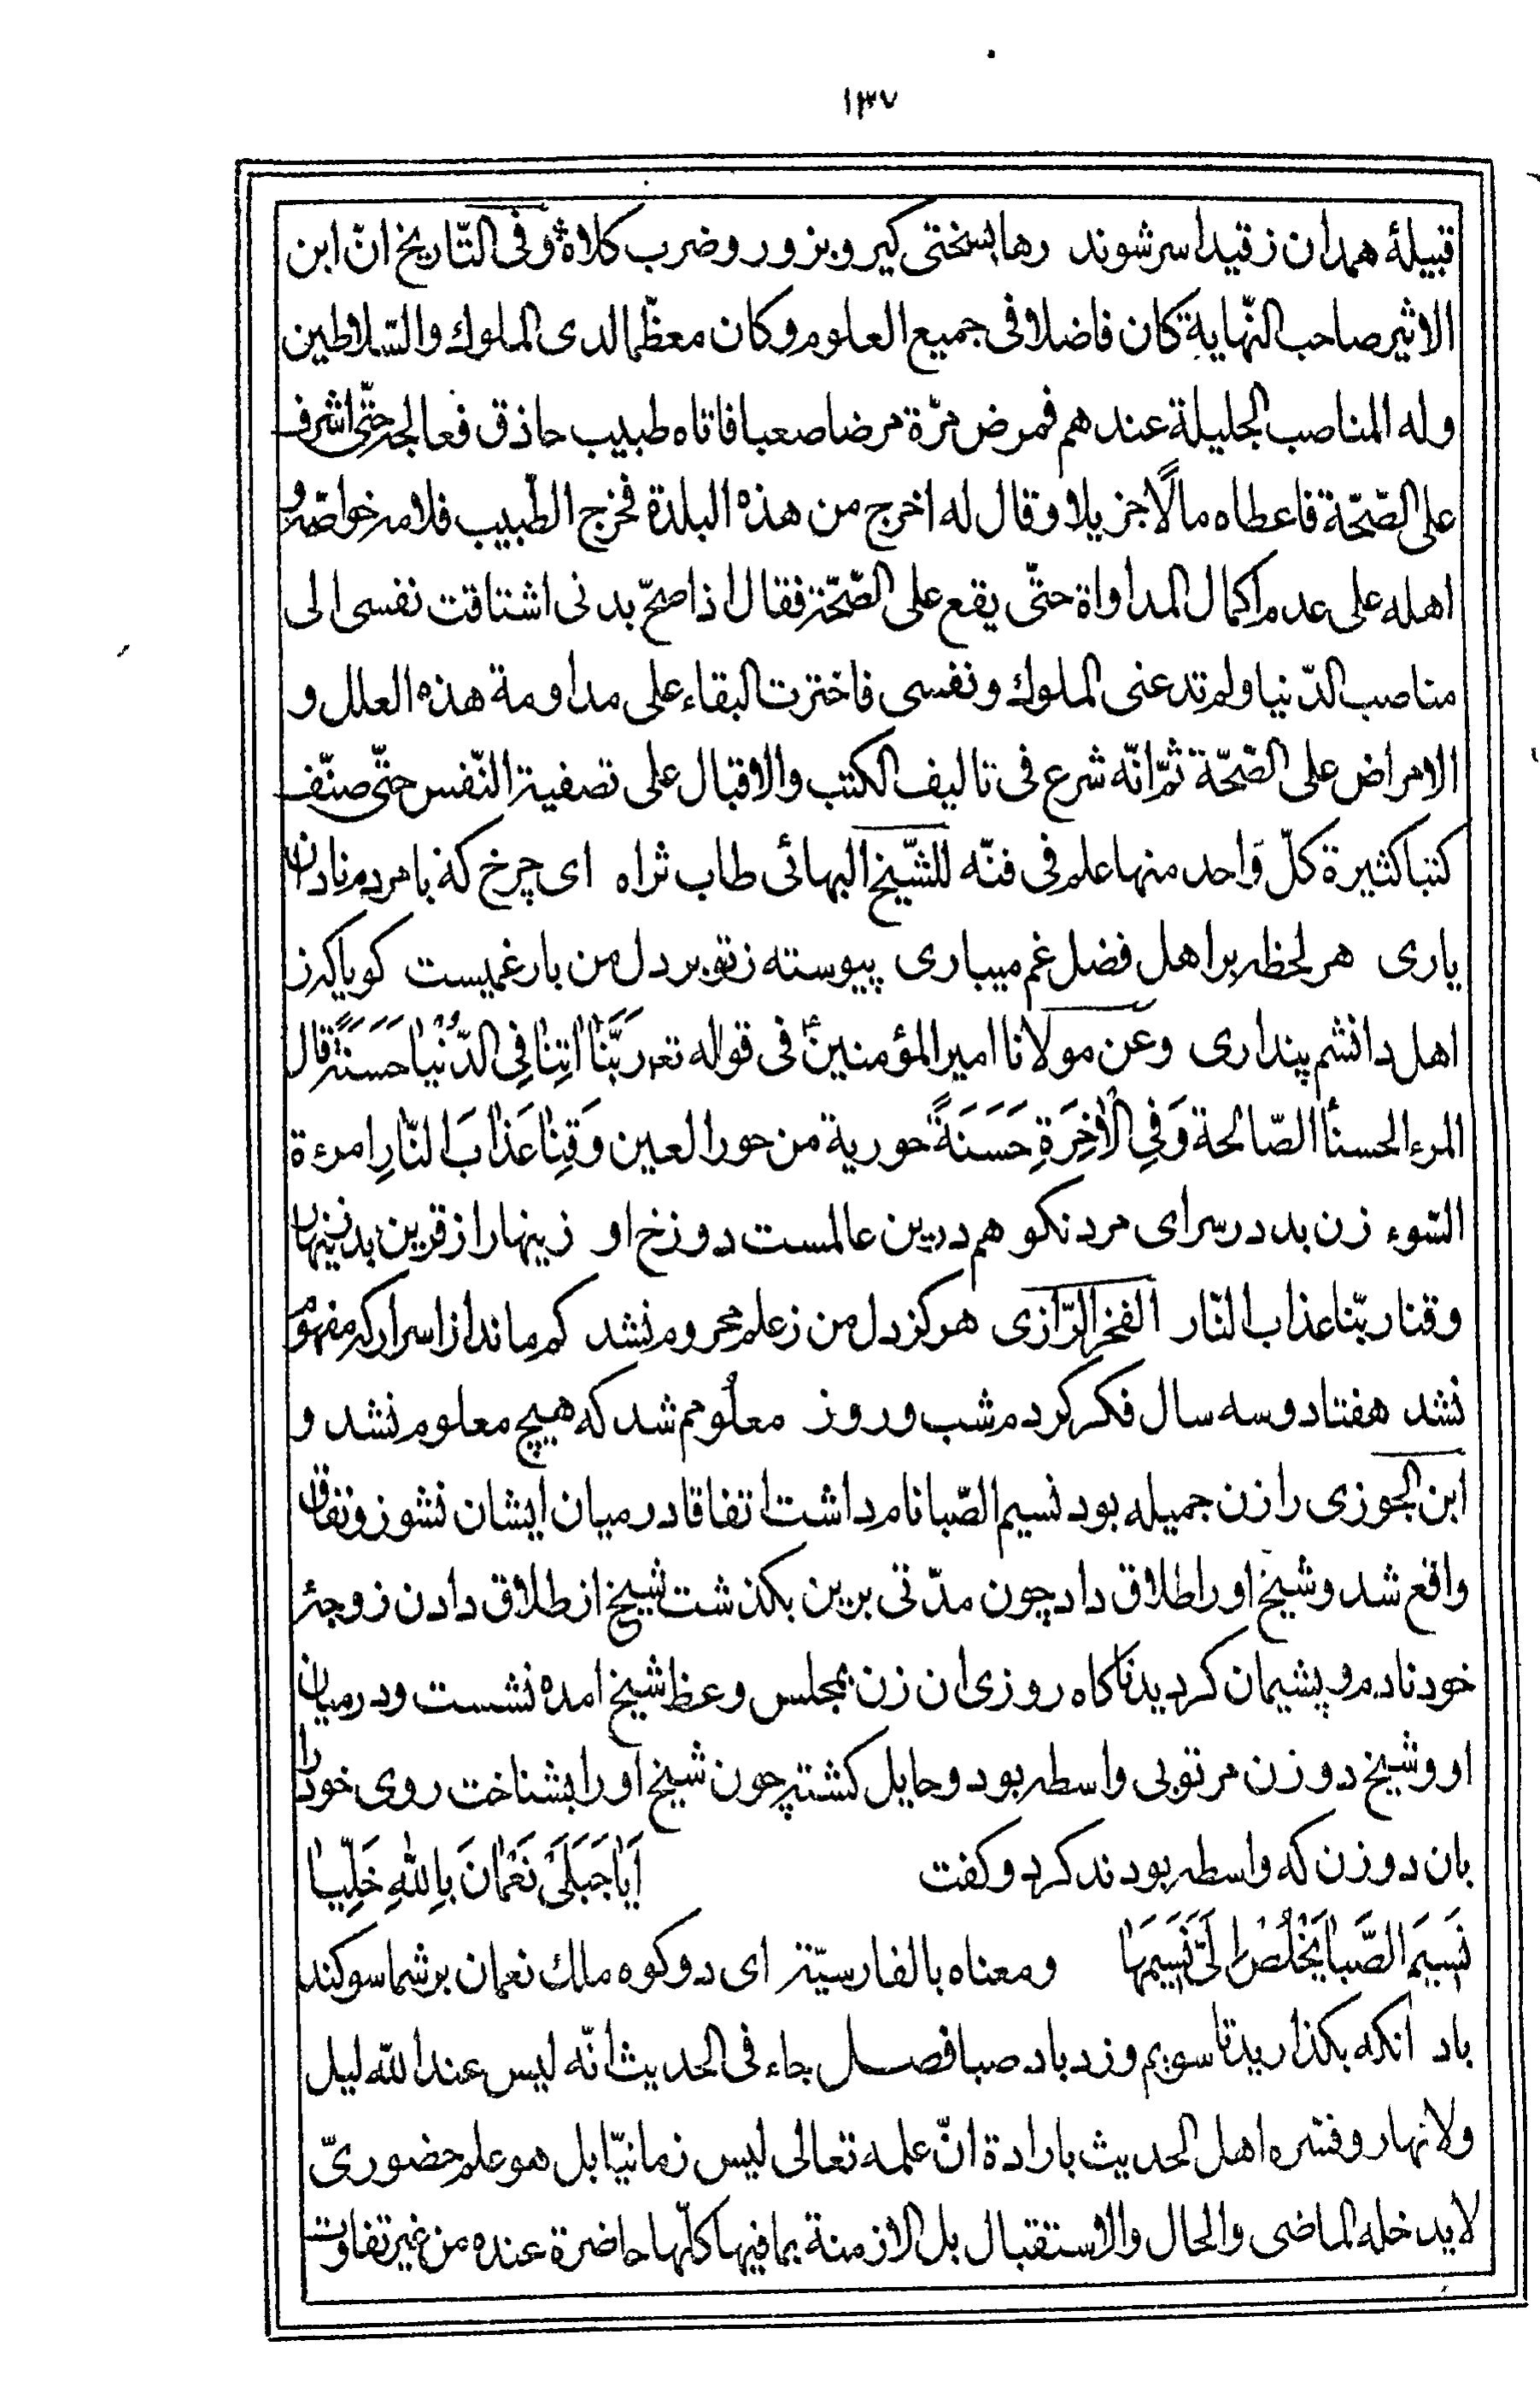 ١٣٧
قبیلهٔ همدان ز قید اسر شوند رها بسختی کیر و بزور و ضرب کلاه و فی التّاریخ انّ ابن
الاثیر صاحب النّهایة کان فاضلا فی جمیع العلوم و کان معظّما لدی الملوك والسّلاطین
وله المناصب الجلیلة عندهم فمرض مرّة مرضا صعبا فاتاه طبیب حاذق فعالجه حتّی اشرف
علی الصّحّة فاعطاه مالًا جزیلا وقال له اخرج من هذه البلدة فخرج الطّبیب فلامه خواصّه و
اهله علی عدم اکمال المداواة حتّی یقع علی الصّحّة فقال اذا صحّ بدنی اشتاقت نفسی الی
مناصب الدّنیا ولم تدعنی الملوك ونفسی فاخترت البقاء علی مداومة هذه العلل و
الامراض علی الصّحّة ثمّ انّه شرع فی تالیف الکتب والاقبال علی تصفیة النّفس حتّی صنّف
کتبا کثیرة کلّ واحد منها علم فی فنّه للشّیخ البهائی طاب ثراه ای چرخ که با مردم نادان
یاری هر لحظه بر اهل فضل غم میباری پیوسته ز تو بر دل من بار غمیست کویا که ز
اهل دانشم پنداری وعن مولانا امیر المؤمنین ع فی قوله تعه رَبَّنَا اتِنَا فِی الدُّنْیَا حَسَنَةً قال
المرء الحسنأ الصّالحة وَفِی الْاخِرَةِ حَسَنَةً حوریة من حور العین وَقِنَا عَذَابَ النَّارِ امرءة
السّوء زن بد در سرای مرد نکو هم درین عالمست دوزخ او زینهار از قرین بد زینهار
وقنا ربّنا عذاب النّار الفخر الرّازی هرکز دل من ز علم محروم نشد کم ماند از اسرار که مفهوم
نشد هفتاد و سه سال فکر کردم شب و روز معلُومم شد که هیچ معلوم نشد و
ابن الجوزی را زن جمیله بود نسیم الصّبا نام داشت اتفاقا در میان ایشان نشوز و نفاق
واقع شد و شیخ او را طلاق داد چون مدّتی برین بکذشت شیخ از طلاق دادن زوجهٔ
خود نادم و پشیمان کردید ناکاه روزی ان زن بمجلس وعظ شیخ امده نشست و در میان
او و شیخ دو زن مرتوبی واسطه بود و حایل کشته چون شیخ او را بشناخت روی خود را
بان دو زن که واسطه بودند کرد و کفت اَیَا جَبَلَیْ نَعْمَانَ بِاللهِ خَلِّیَا
نَسِیمَ الصَّبَا یَخْلُصْ اِلَیَّ نَسِیمَهَا ومعناه بالفارسیّة ای دو کوه ملك نعمان بر شما سوکند
باد انکه بکذارید تا سویم وزد باد صبا فصل جاء فی الحدیث انّه لیس عند الله لیل
ولا نهار وفسّره اهل الحدیث بارادة انّ علمه تعالی لیس زمانیّا بل هو علم حضوریّ
لا یدخله الماضی والحال والاستقبال بل الازمنة بما فیها کلّها حاضرة عنده من غیر تفاوت